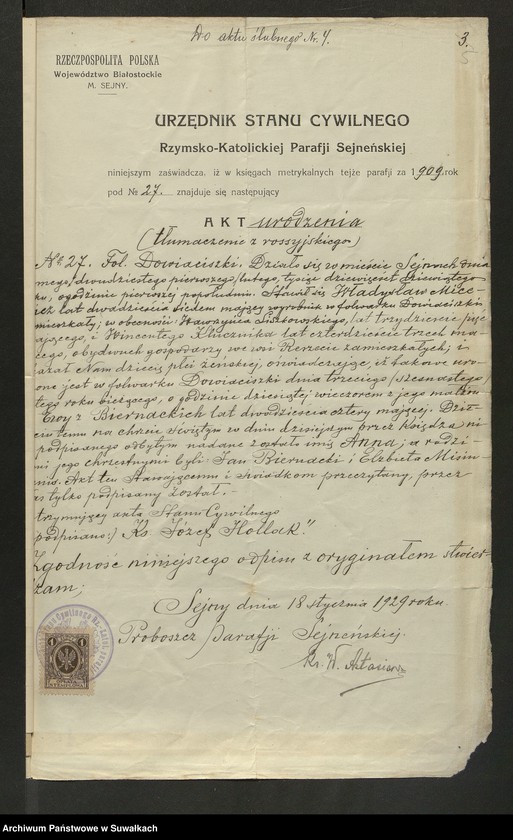 Do aktu ślubnego Nr. 4.
3.
5
RZECZPOSPOLITA POLSKA
Województwo Białostockie
M. SEJNY.
URZĘDNIK STANU CYWILNEGO
Rzymsko-Katolickiej Parafji Sejneńskiej
niniejszym zaświadcza, iż w księgach metrykalnych tejże parafji za 1909 rok
pod № 27. znajduje się następujący
AKT urodzenia
(tłumaczenie z rossyjskiego)
№ 27. Fol. Dowiaciszki. Działo się w mieście Sejnach dnia
ósmego/dwudziestego pierwszego/lutego, tysiąc dziewięćset dziewiątego
ku, o godzinie pierwszej popołudniu. Stawił się Władysław
lat dwadzieścia siedem mający wyrobnik w folwarku Dowiaciszki
mieszkały, w obecności Wawrzyńca lat trzydzieście pięć
ającego, i Wincentego Klucznika lat czterdzieście trzech ma-
cego, obydwuch gospodarzy we wsi zamieszkałych; i
azał Nam dziecię płci żeńskiej, oświadczając, iż takowe uro-
one jest w folwarku Dowiaciszki dnia trzeciego/szesnastego/
tego roku bieżącego, o godzinie dziesiątej wieczorem z jego małżon
Ewy z Biernackich lat dwadzieścia cztery mającej. Dzie-
cięciu temu na chrzcie świętym w dniu dzisiejszym przez księdza ni
podpisanego odbytym nadane zostało imię Anna; a rodzi-
mi jego chrzestnymi byli: Jan Biernacki i Elżbieta
Akt ten stawającemu i świadkom przeczytany, przez
as tylko podpisany został.-
trzymujący akta Stanu Cywilnego
podpisano:) Ks. Józef Hollak."
Zgodność niniejszego odpisu z oryginałem stwier-
dzam;
Sejny dnia 18 stycznia 1929 roku.
Proboszcz parafji Sejneńskiej.
Ks. W.
1
1
OPŁATA
STEMPLOWA
Archiwum Państwowe w Suwałkach